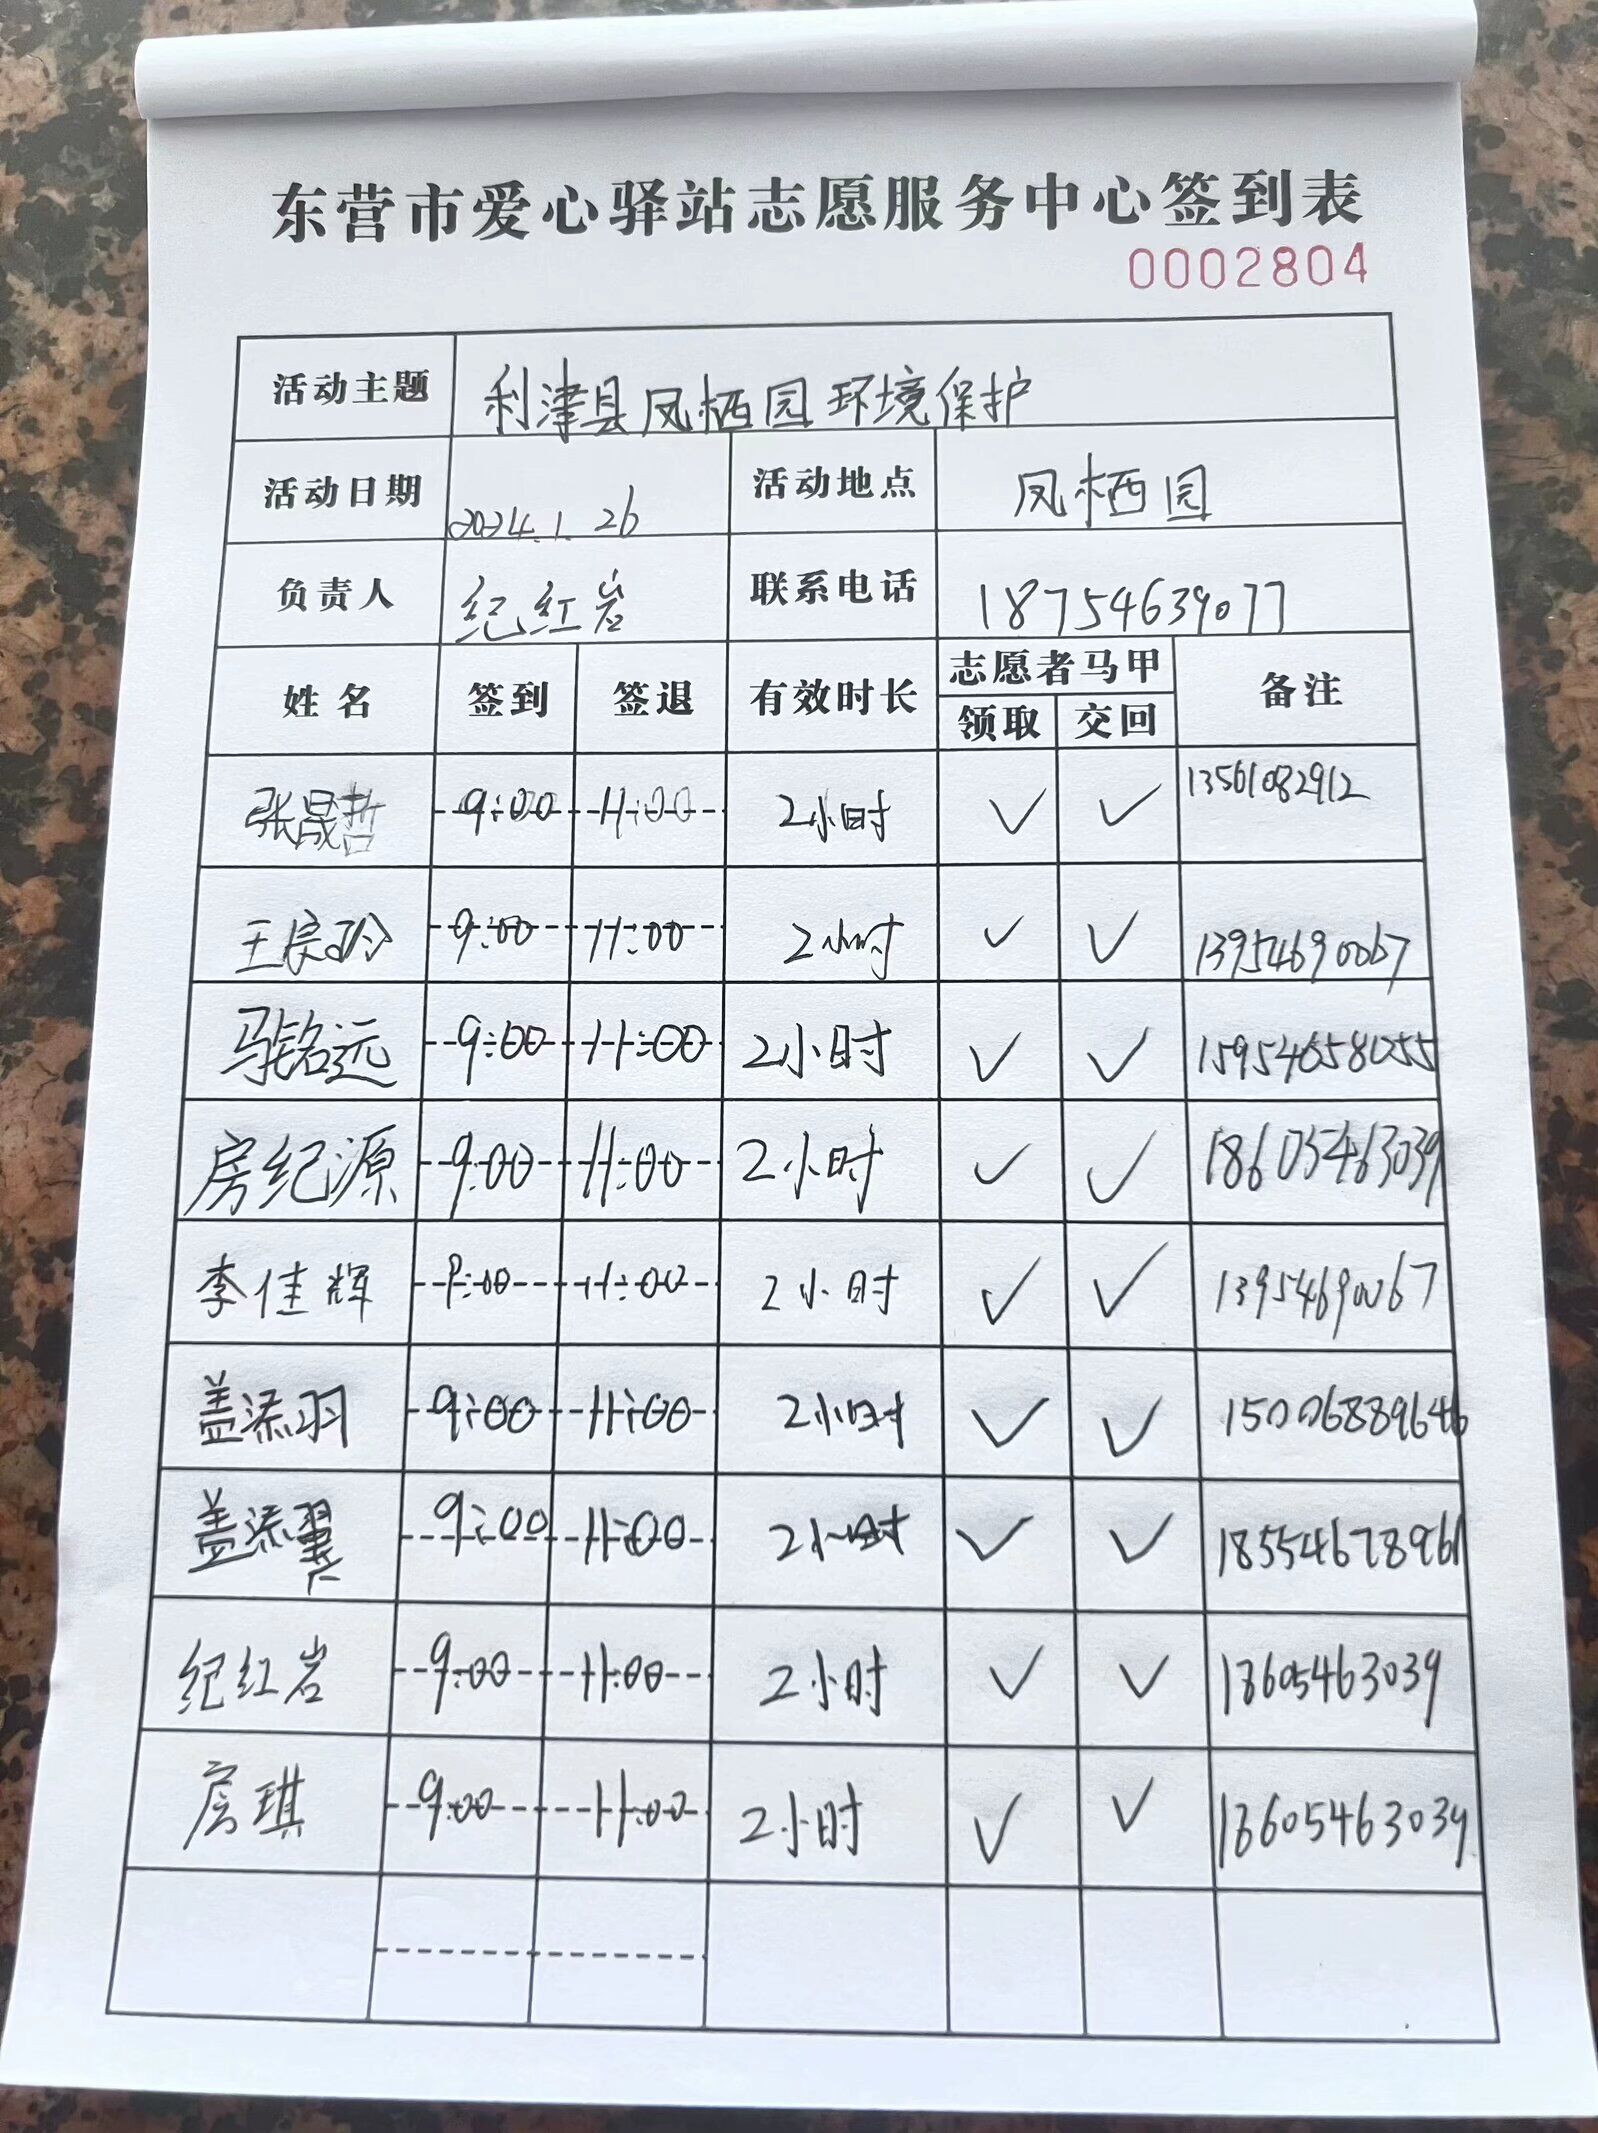 东营市爱心驿站志愿服务中心签到表
0002804
活动主题 利津县凤栖园环境保护
活动日期 2024.1.26 活动地点 凤栖园
负责人 纪红岩 联系电话 18754639077
姓名 签到 签退 有效时长 志愿者马甲 备注
领取 交回
张晟哲 9:00 11:00 2小时 ✓ ✓ 13561082912
王 9:00 11:00 2小时 ✓ ✓ 13954690067
马铭远 9:00 11:00 2小时 ✓ ✓ 15954658055
房纪源 9:00 11:00 2小时 ✓ ✓ 18605463039
李佳辉 9:00 11:00 2小时 ✓ ✓ 13954690067
盖添羽 9:00 11:00 2小时 ✓ ✓ 15006889646
盖添翼 9:00 11:00 2小时 ✓ ✓ 18554678961
纪红岩 9:00 11:00 2小时 ✓ ✓ 18605463039
房琪 9:00 11:00 2小时 ✓ ✓ 18605463039